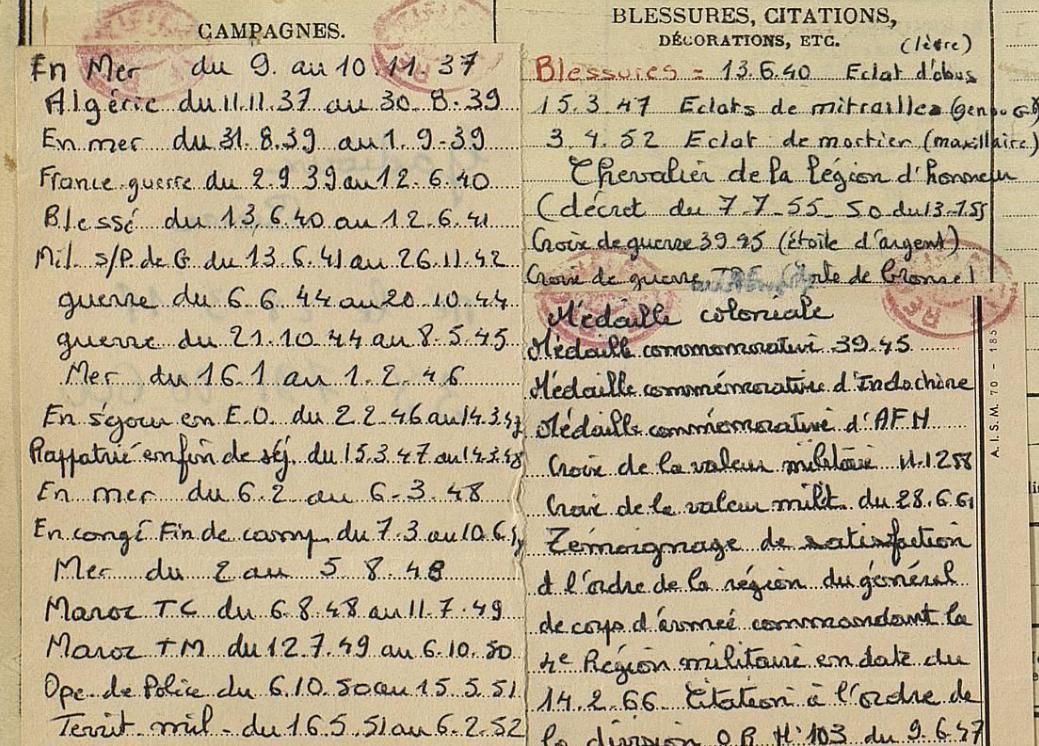 CAMPAGNES.
En Mer du 9. au 10.11.37
Algérie du 11.11.37 au 30.8.39
En mer du 31.8.39 au 1.9-39
France guerre du 2.9 39 au 12.6.40
Blessé du 13.6.40 au 12.6.41
Mil. s/P. de G du 13.6.41 au 26.11.42
guerre du 6.6.44 au 20.10.44
guerre du 21.10.44 au 8.5.45
Mer du 16.1 au 1.2.46
En séjour en E.O. du 2.2.46 au 14.3.47
Rappatrié en fin de séj. du 15.3.47 au 14.3.48
En mer du 6.2 au 6-3.48
En congé Fin de camp. du 7.3 au 10.6.
Mer du 2 au 5.8.48
Maroc TC du 6.8.48 au 11.7.49
Maroc TM du 12.7.49 au 6.10.50
Ope. de Police du 6.10.50 au 15.5.51
Territ. mil - du 16.5.51 au 6.2.52
BLESSURES, CITATIONS,
DÉCORATIONS, ETC.
Blessures = 13.6.40 Eclat d'obus (lèvre)
15.3.47 Eclats de mitrailles (genou G)
3.4.52 Eclat de mortier (maxillaire)
Chevalier de la Légion d'honneur
(décret du 7.7-55
Croix de guerre 39.45 (étoile d'argent)
Croix de guerre TOE de bronze
Médaille coloniale
Médaille commemorative 39.45
Médaille commémorative d'Indochine
Médaille commémorative d'AFN
Croix de la valeur militaire
Croix de la valeur milit. du 28.6.61
Témoignage de satisfaction
à l'ordre de la région du général
de corps d'armée commandant la
4e Région militaire en date du
14.2.66 Citation à l'ordre de
la division O.R N°103 du 9.6.47
A.I.S.M. 70 - 185